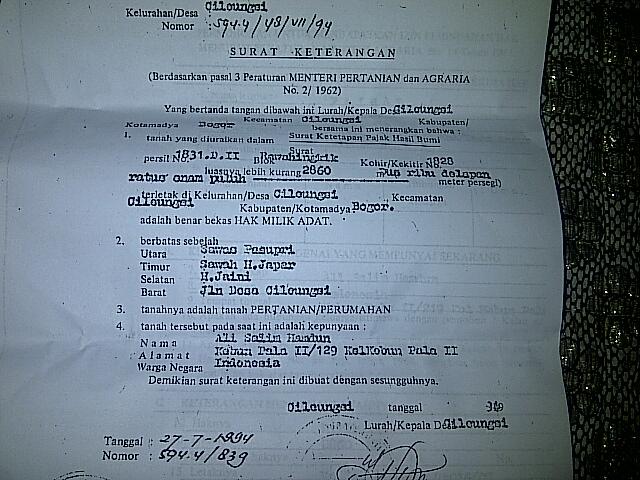 Kelurahan/Desa Cileungsi
Nomor : 594.4/48/VII/94
SURAT KETERANGAN
(Berdasarkan pasal 3 Peraturan MENTERI PERTANIAN dan AGRARIA
No. 2/ 1962)
Yang bertanda tangan dibawah ini Lurah/Kepala De Cileungsi
Kecamatan Cileungsi Kabupaten/
Kotamadya Bogor bersama ini menerangkan bahwa :
1. tanah yang diuraikan dalam Surat Ketetapan Pajak Hasil Bumi
Surat
persil No. 1831.D.II Kohir/Kekitir No 1828
luasnya lebih kurang 2860 dua ribu delapan
ratus enam puluh meter persegi)
terletak di Kelurahan/Desa Cileungsi Kecamatan
Cileungsi Kabupaten/Kotamadya Bogor.
adalah benar bekas HAK MILIK ADAT.
2. berbatas sebelah
Utara Sawas Pasupri
Timur Sawah H.Japar
Selatan H.Jaini
Barat Jln Desa Cileungsi
3. tanahnya adalah tanah PERTANIAN/PERUMAHAN
4. tanah tersebut pada saat ini adalah kepunyaan :
Nama Ali Salim Hamdun
Alamat Kebun Pala II/129 KelKebun Pala II
Warga Negara Indonesia
Demikian surat keterangan ini dibuat dengan sesungguhnya.
Cileungsi tanggal
Lurah/Kepala De Cileungsi
Tanggal : 27-7-1994
Nomor : 594.4/839